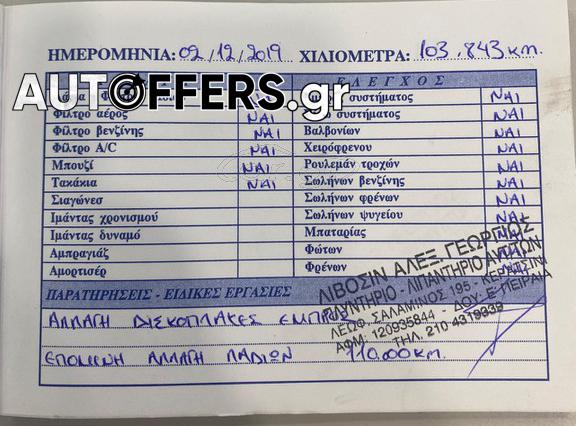 ΗΜΕΡΟΜΗΝΙΑ: 02/12/2019 ΧΙΛΙΟΜΕΤΡΑ: 103.843 km.
ΕΛΕΓΧΟΣ
AUTOFFERS.gr
συστήματος
Φίλτρο αέρος ΝΑΙ συστήματος ΝΑΙ
Φίλτρο βενζίνης ΝΑΙ Βαλβονίων ΝΑΙ
Φίλτρο A/C ΝΑΙ Χειρόφρενου ΝΑΙ
Μπουζί ΝΑΙ Ρουλεμάν τροχών ΝΑΙ
Τακάκια ΝΑΙ Σωλήνων βενζίνης ΝΑΙ
Σιαγώνεσ Σωλήνων φρένων ΝΑΙ
Ιμάντας χρονισμού Σωλήνων ψυγείου ΝΑΙ
Ιμάντας δυναμό Μπαταρίας ΝΑΙ
Αμπραγιάζ Φώτων ΝΑΙ
Αμορτισέρ Φρένων
ΠΑΡΑΤΗΡΗΣΕΙΣ - ΕΙΔΙΚΕΣ ΕΡΓΑΣΙΕΣ
ΑΛΛΑΓΗ ΔΙΣΚΟΠΛΑΚΕΣ ΕΜΠΡΟΣ
ΕΠΟΜΕΝΗ ΑΛΛΑΓΗ ΛΑΔΙΩΝ 110.000 km.
ΛΙΒΟΣΙΝ ΑΛΕΞ. ΓΕΩΡΓΙΟΣ
ΠΛΥΝΤΗΡΙΟ - ΛΙΠΑΝΤΗΡΙΟ ΑΥΤ/ΤΩΝ
ΛΕΩΦ. ΣΑΛΑΜΙΝΟΣ 195 - ΚΕΡΑΤΣΙΝΙ
ΑΦΜ: 120935844 - ΔΟΥ: Ε' ΠΕΙΡΑΙΑ
ΤΗΛ. 210 4319336